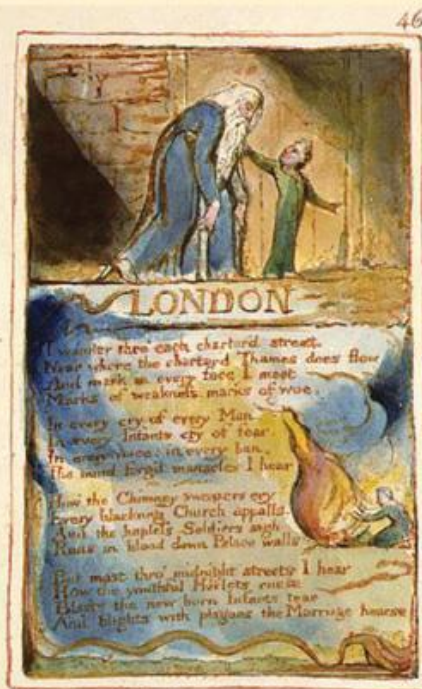 46
LONDON
I wander thro' each charter'd street,
Near where the charter'd Thames does flow
And mark in every face I meet
Marks of weakness marks of woe.
In every cry of every Man,
In every Infants cry of fear,
In every voice; in every ban,
The mind forg'd manacles I hear
How the Chimney sweepers cry
Every blackning Church appalls,
And the hapless Soldiers sigh
Runs in blood down Palace walls
But most thro' midnight streets I hear
How the youthful Harlots curse
Blasts the new born Infants tear
And blights with plagues the Marriage hearse